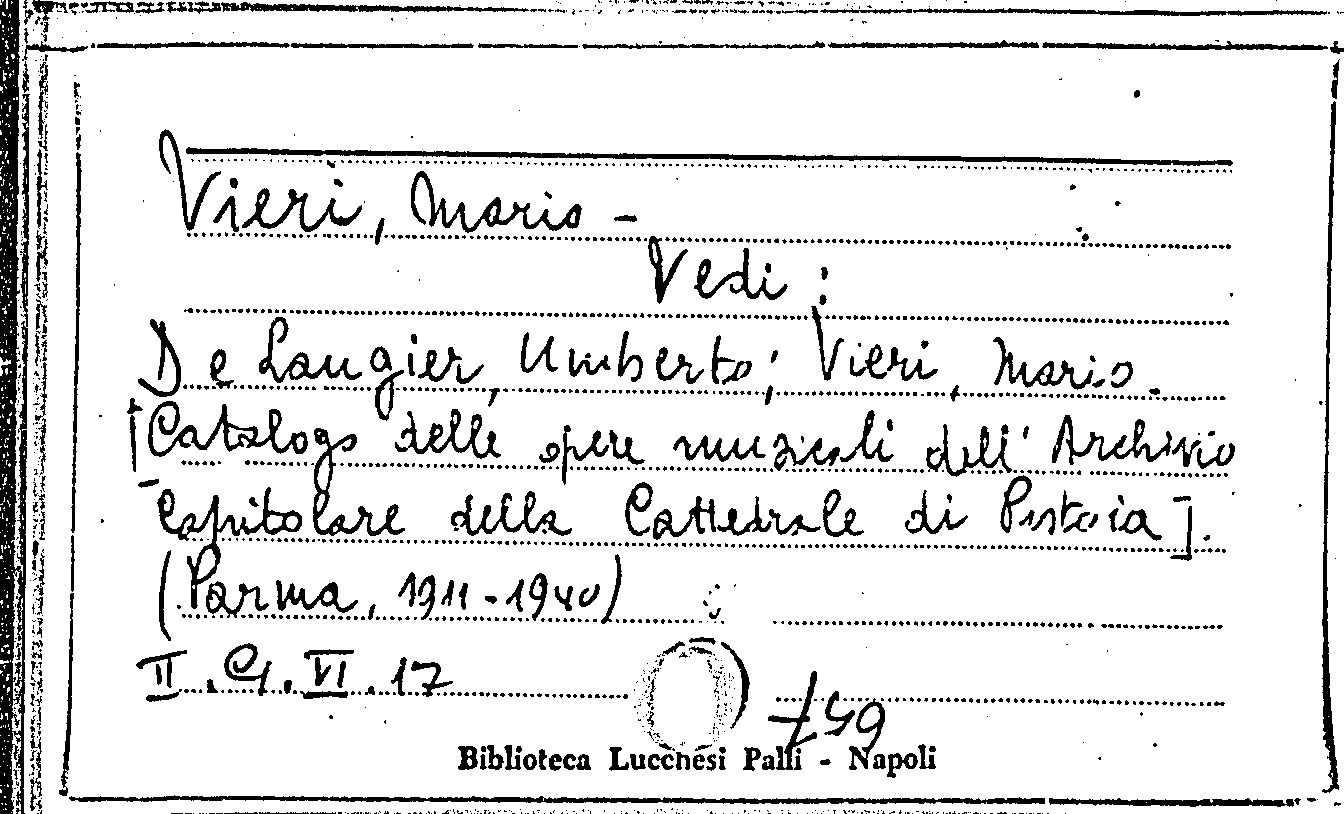 Vieri, Mario -
Vedi :
De Laugier, Umberto; Vieri, Mario.
[Catalogo delle opere musicali dell' Archivio
Capitolare della Cattedrale di Pistoia].
(Parma, 1911-1940)
II. G. VI. 17
Biblioteca Lucchesi Palli - Napoli